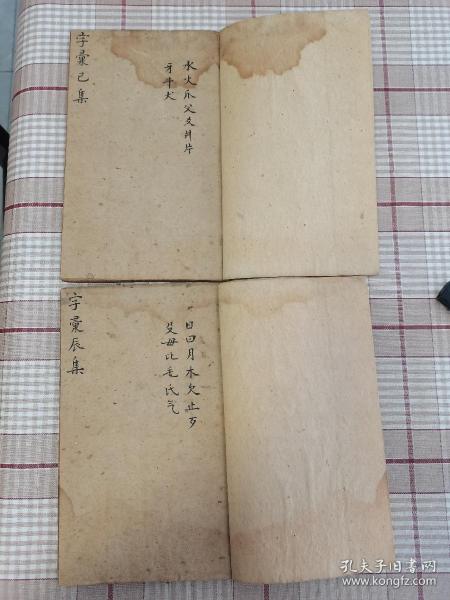 字彙巳集
水火爪父爻爿片
牙牛犬
字彙辰集
日曰月木欠止歹
殳毋比毛氏气
孔夫子旧书网
www.kongfz.com